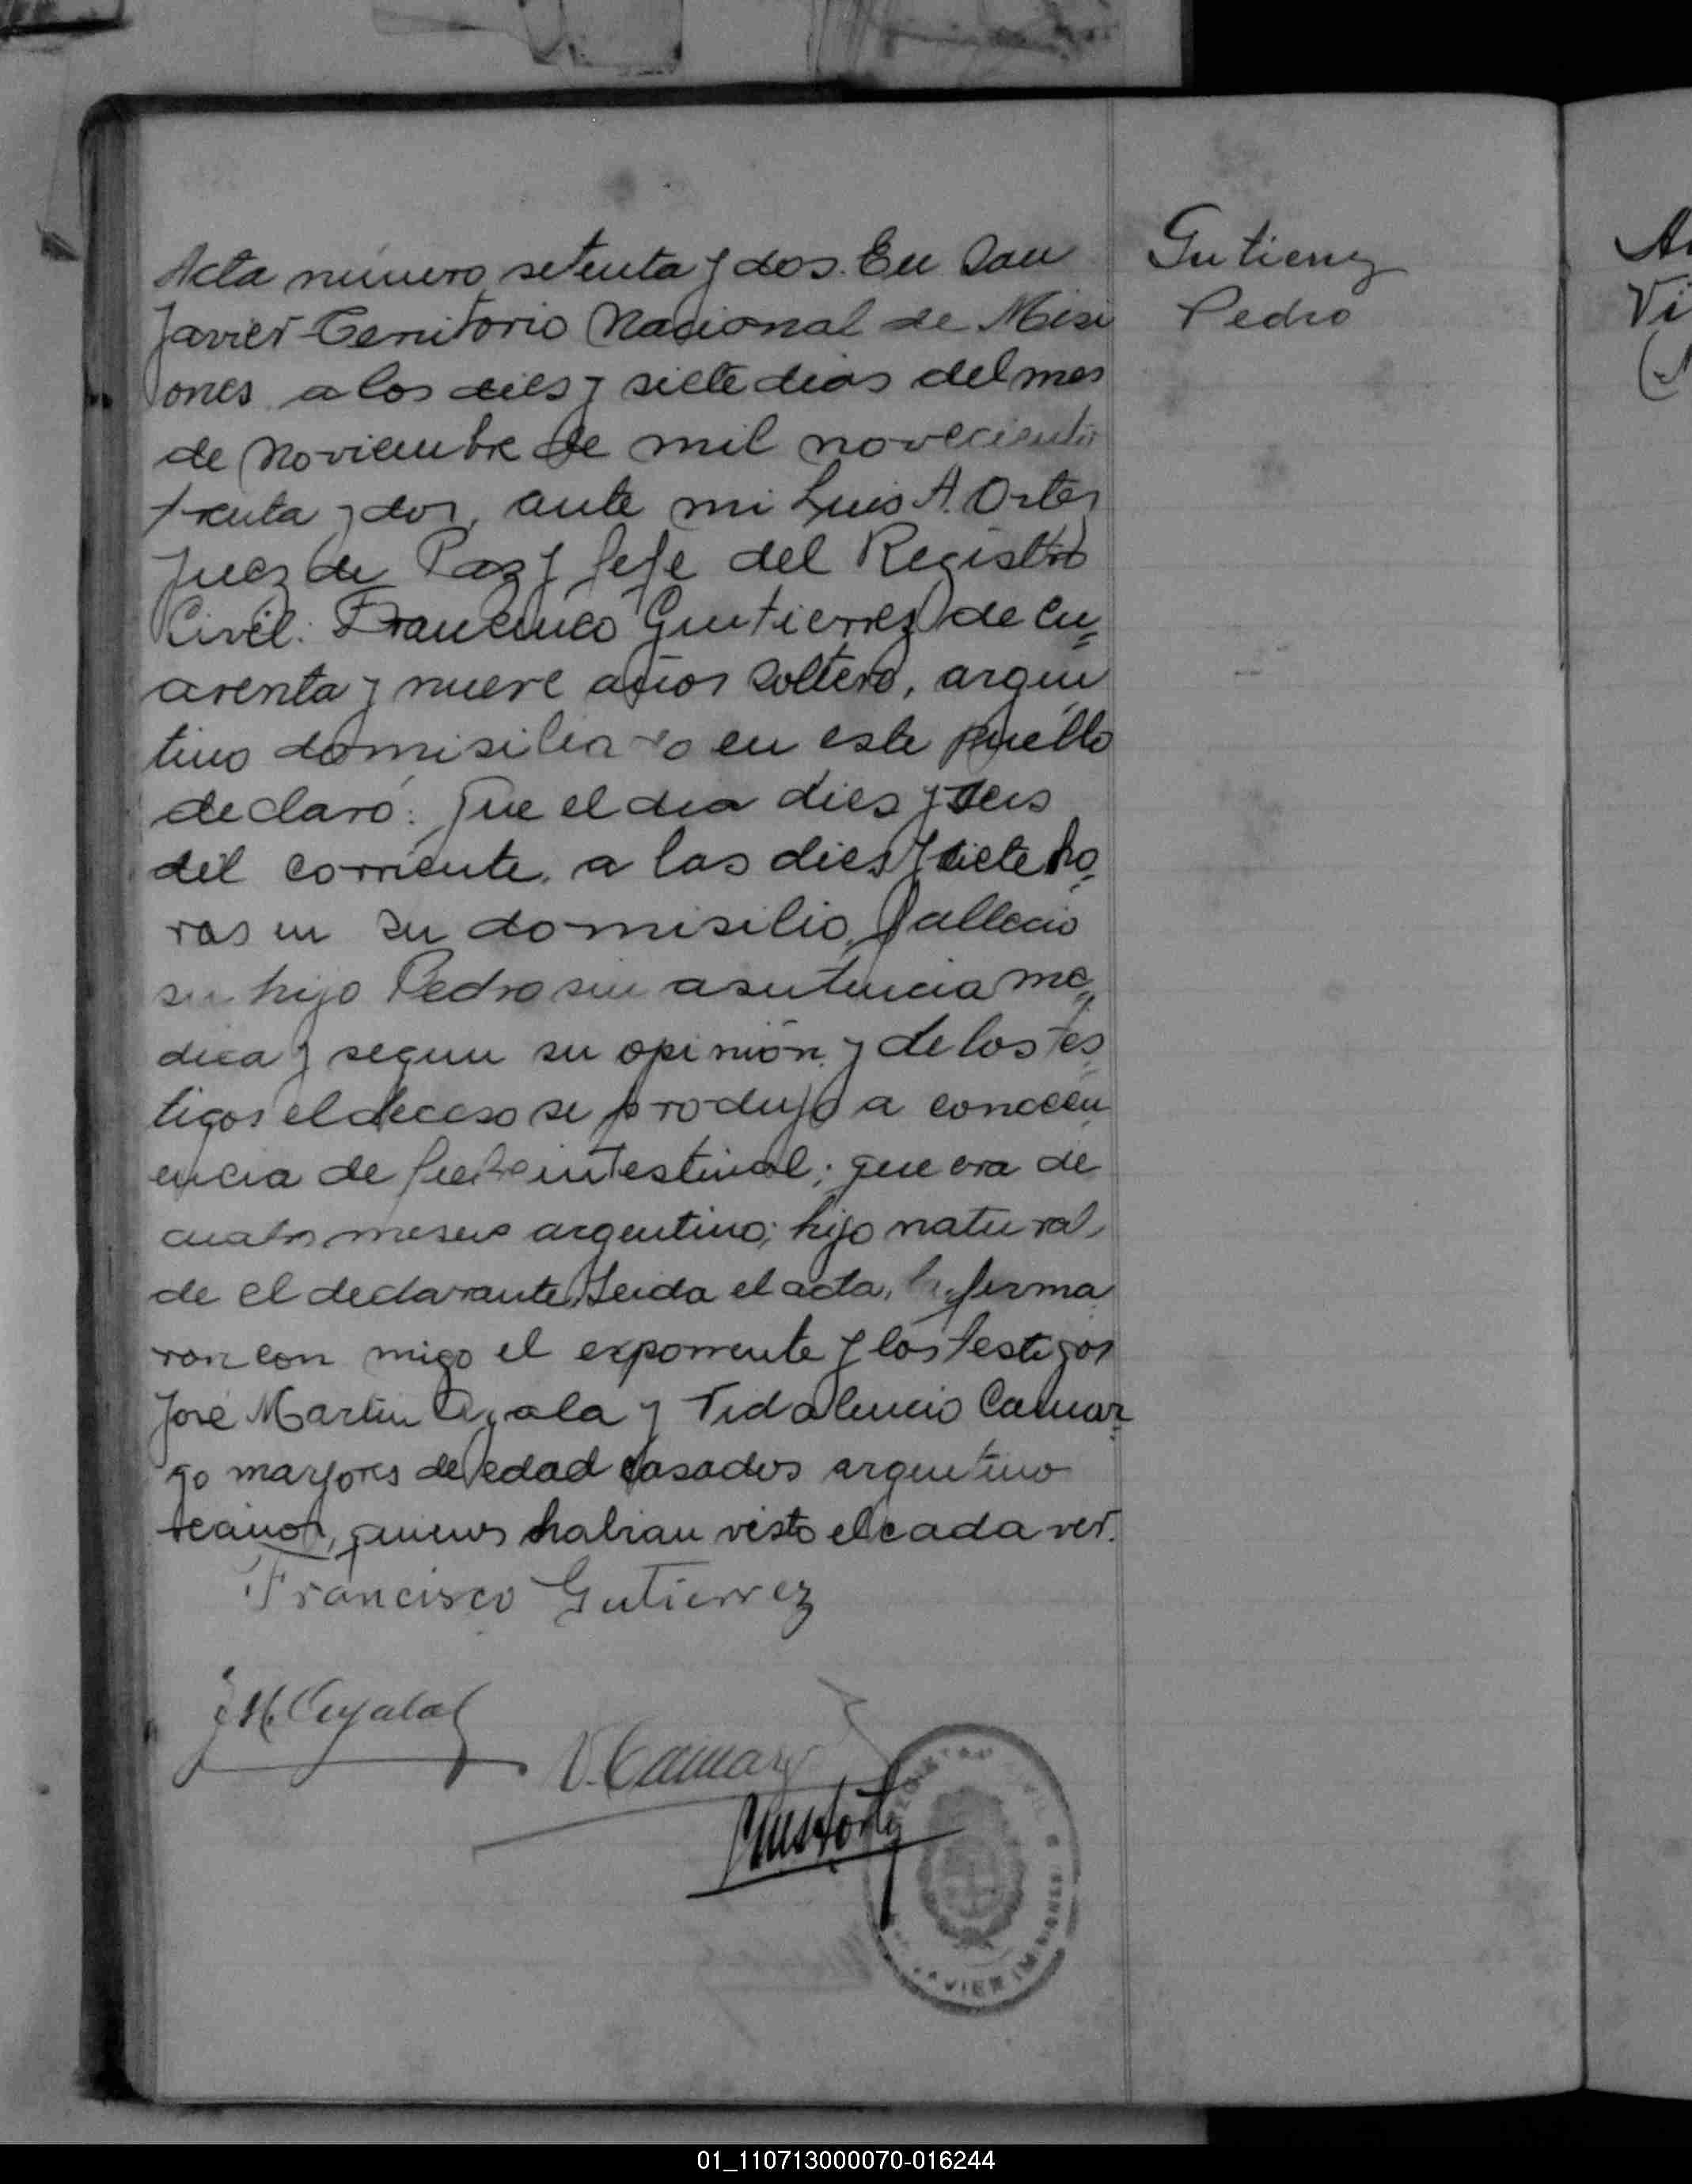 Acta número setenta y dos. En San
Javier Territorio Nacional de Misi
ones a los dies y siete dias del mes
de Noviembre de mil novecientos
treinta y dos, ante mi Luis A. Ortiz
Juez de Paz y Jefe del Registro
Civil: Francisco Gutierrez de cu=
arenta y nueve años soltero, argen
tino domisiliado en este pueblo
declaró: Que el dia dies y seis
del corriente, a las dies y siete ho=
ras en su domisilio, fallecio
su hijo Pedro sin asistencia me=
dica y segun su opinión y de los tes=
tigos el deceso se produjo a consecu
encia de fiebre intestinal; que era de
cuatro meses argentino; hijo natural
de el declarante. Leida el acta, la firma
ron con migo el exponente y los testigos
José Martin Ayala y Vidalencio Camar=
go maryores de edad casados argentino
vecinos, quienes habian visto el cadaver.
Francisco Gutierrez
J M. Ayala
V. Camargo
Luis A Ortiz
REGISTRO CIVIL
JAVIER (MISIONES)
Gutierrez
Pedro
Vi
01_110713000070-016244